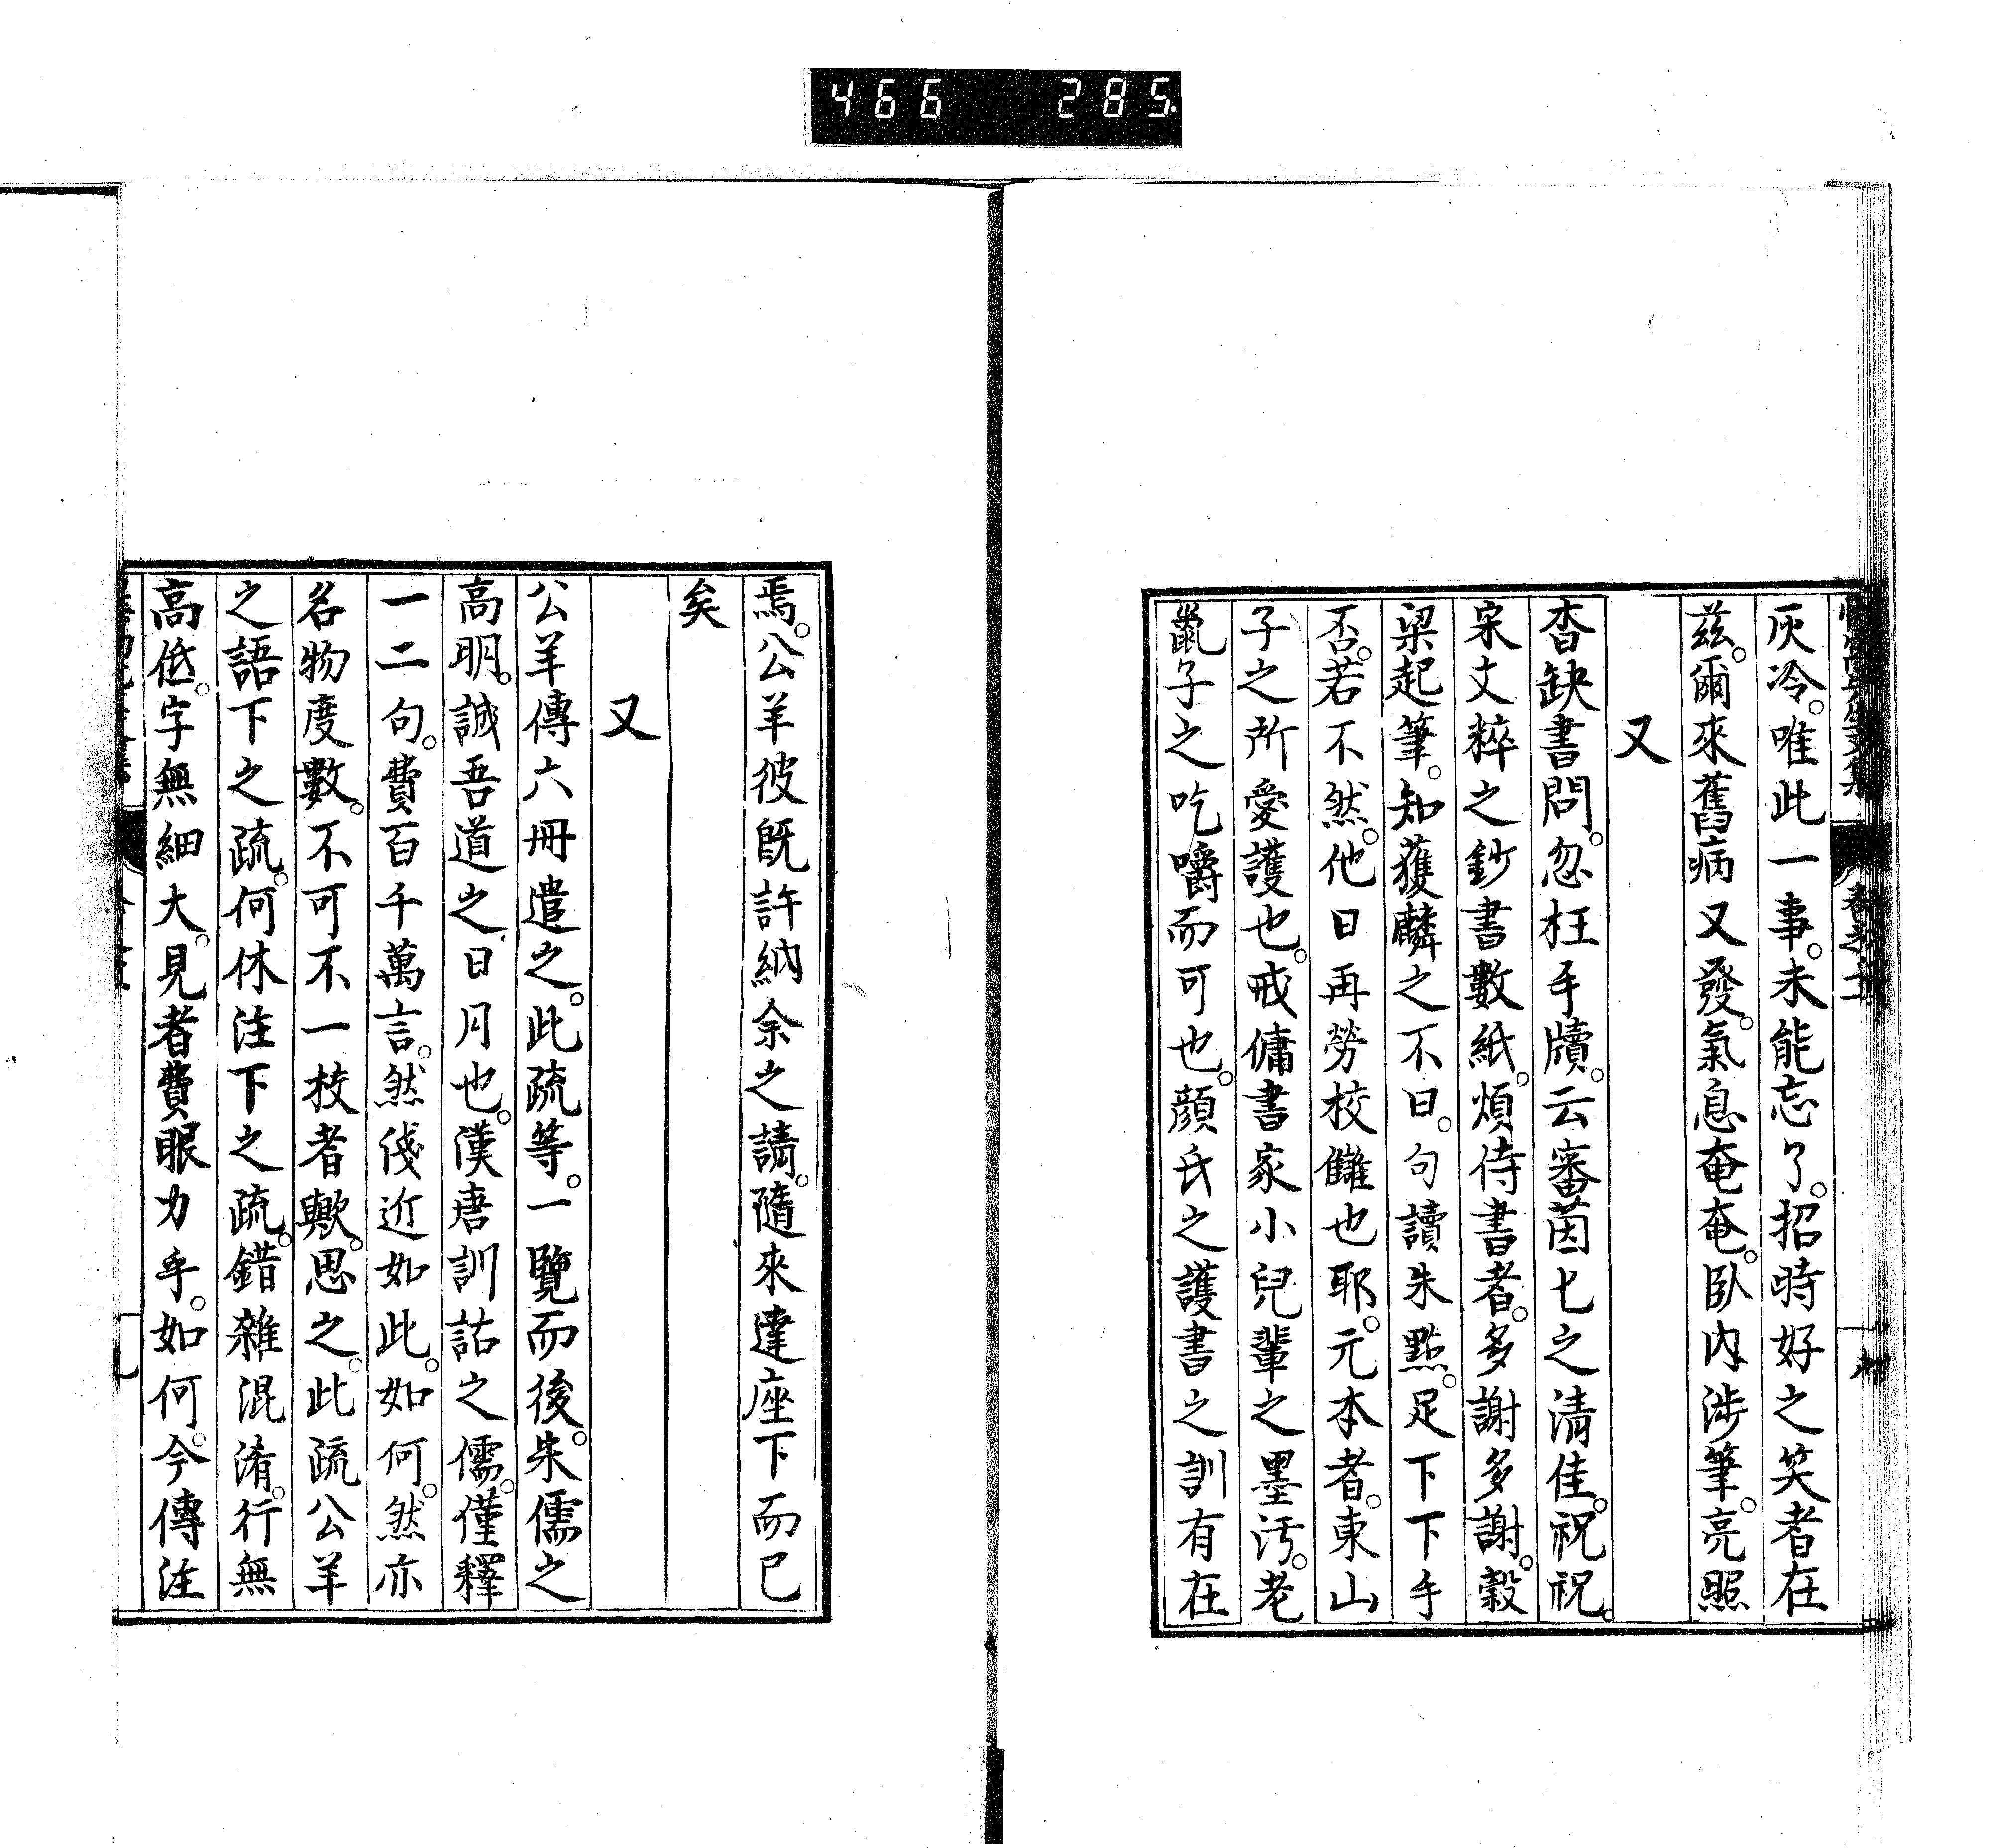 466 285
灰冷。唯此一事。未能忘了。招時好之笑者在
茲。爾來舊病又發。氣息奄奄。臥內涉筆。亮照
又
杳缺書問。忽枉手牘。云審茵七之清佳。祝祝。
宋文粹之鈔書數紙。煩侍書者。多謝多謝。穀
梁起筆。知獲麟之不日。句讀朱點。足下下手
否。若不然。他日再勞校讎也耶。元本者。東山
子之所愛護也。戒傭書家小兒輩之墨汚。老
鼠子之吃嚼而可也。顏氏之護書之訓有在
焉。公羊彼既許納余之請。隨來達座下而已
矣
又
公羊傳六冊遣之。此疏等。一覽而後。朱儒之
高明。誠吾道之日月也。漢唐訓詁之儒。僅釋
一二句。費百千萬言。然淺近如此。如何。然亦
名物度數。不可不一校者歟。思之。此疏公羊
之語下之疏。何休注下之疏。錯雜混淆。行無
高低。字無細大。見者費眼力乎。如何。今傳注